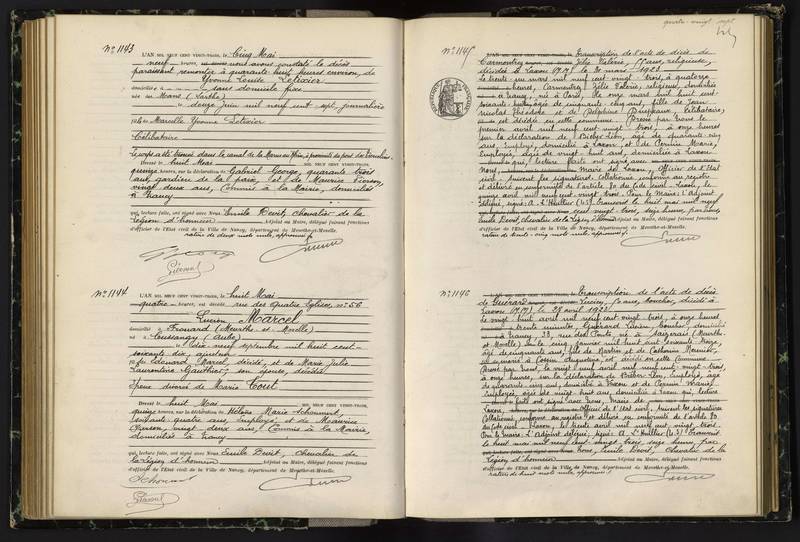 quatre-vingt sept
N° 1143
L'AN MIL NEUF CENT VINGT-TROIS, le Cinq Mai
neuf heures, nous avons constaté le décès
paraissant remonter à quarante huit heures environ, de
Yvonne Louise Letixier
domicilié à sans domicile fixe
né au Mans (Sarthe)
le douze Juin mil neuf cent sept, journalière
fille de Marcelle Yvonne Letixier
Célibataire
Le corps a été trouvé dans le canal de la Marne au Rhin, à proximité du pont
Dressé le huit Mai MIL NEUF CENT VINGT-TROIS,
quinze heures, sur la déclaration de Gabriel George, quarante trois
ans, gardien de la paix, et de Maurice Pierson,
vingt deux ans, Commis à la Mairie, domiciliés
à Nancy
qui, lecture faite, ont signé avec Nous Emile Devit, Chevalier de la
Légion d'honneur Adjoint au Maire, délégué faisant fonctions
d'officier de l'Etat civil de la Ville de Nancy, département de Meurthe-et-Moselle.
rature de deux mots nuls, approuvée
N° 1144
L'AN MIL NEUF CENT VINGT-TROIS, le huit Mai
quatre heures, est décédé rue des Quatre Eglises, n° 56
Lucien Marcel
domicilié à Frouard (Meurthe et Moselle)
né à Loussanay (Aube)
le dix neuf septembre mil huit cent
soixante dix, ajusteur
fils de Edouard Marcel, décédé, et de Marie Julie
Laurentine Gauthier, son épouse, décédée
Epoux divorcé de Marie Coul
Dressé le huit Mai MIL NEUF CENT VINGT-TROIS,
quinze heures, sur la déclaration de Héloïse Marie Schoumert,
soixante quatre ans, employée, et de Maurice
Pierson, vingt deux ans, Commis à la Mairie,
domiciliés à Nancy
qui, lecture faite, ont signé avec Nous Emile Devit, Chevalier de
la Légion d'honneur Adjoint au Maire, délégué faisant fonctions
d'officier de l'Etat civil de la Ville de Nancy, département de Meurthe-et-Moselle.
N° 1145
L'AN MIL NEUF CENT VINGT-TROIS, le Transcription de l'acte de décès de
Carmentrey Zélie Valérie, 51 ans, religieuse,
décédée à Laxou (M.M) le 30 mars 1923
Le trente un mars mil neuf cent vingt trois, à quatorze
heures, Carmentrey Zélie Valérie, religieuse, domiciliée
à Nancy, née à Paré le onze mars mil huit cent
âgée de cinquante cinq ans, fille de Jean
Nicolas Théodore et de Delphine Dusseaux, Célibataire,
est décédée en cette commune. Dressé par nous le
premier avril mil neuf cent vingt trois, à onze heures
sur la déclaration de Bieber Léon, âgé de quarante cinq
ans, Employé, domicilié à Laxou et de Cernin Marie,
Employée, âgée de vingt huit ans, domiciliée à Laxou
qui, lecture faite ont signé avec
Nous, Maire de Laxou Officier de l'Etat
civil. Suivent les signatures. Collationné, conforme au registre
et délivré en conformité de l'article 80 du Code civil. Laxou, le
deux avril mil neuf cent vingt trois. Pour le Maire: L'Adjoint
Délégué, signé: A. L'Huillier (L.S). Transcrit le huit mai mil neuf
cent vingt trois, seize heures, par nous,
Emile Devit, Chevalier de la Légion d'honneur Adjoint au Maire, délégué faisant fonctions
d'officier de l'Etat civil de la Ville de Nancy, département de Meurthe-et-Moselle.
rature de trente cinq mots nuls, approuvée
N° 1146
L'AN MIL NEUF CENT VINGT-TROIS, le Transcription de l'acte de décès
de Guérard Lucien, 50 ans, boucher, décédé à
Laxou (M.M) le 28 avril 1923
Le vingt huit avril mil neuf cent vingt trois, à onze heures
trente minutes, Guérard Lucien, boucher, domicilié
à Nancy, 33, rue des Ponts, né à Saizerais (Meurthe
et Moselle) le cinq janvier mil huit cent soixante treize,
âgé de cinquante ans, fils de Martin et de Catherine Mounier,
est décédé en cette Commune
Dressé par nous, le vingt neuf avril mil neuf cent vingt trois,
à onze heures, sur la déclaration de Bieber Léon, Employé, âgé
de quarante cinq ans, domicilié à Laxou et de Cernin Marie
Employée, âgée de vingt huit ans, domiciliée à Laxou, qui, lecture
faite ont signé avec Nous, Maire de
Laxou, Officier de l'Etat civil. Suivent les signatures
Collationné, conforme au registre et délivré en conformité de l'article 80
du Code civil. Laxou, le trente avril mil neuf cent vingt trois.
Pour le Maire: L'Adjoint délégué, signé: A. L'Huillier (L.S). Transcrit
le huit mai mil neuf cent vingt trois, seize heures, par
Nous, Emile Devit, Chevalier de la
Légion d'honneur Adjoint au Maire, délégué faisant fonctions
d'officier de l'Etat civil de la Ville de Nancy, département de Meurthe-et-Moselle.
rature de huit mots nuls, approuvée